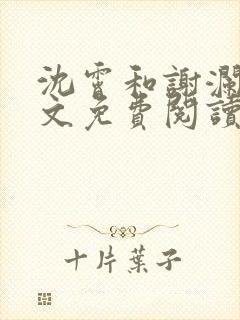 沈霄和謝瀾
文免費閱讀
十片葉子